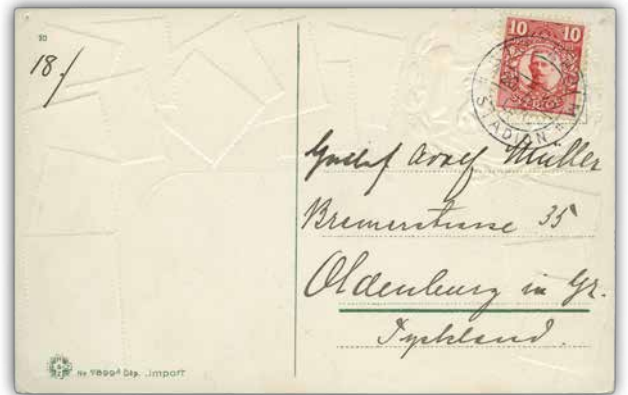 10
18./
10 10
SVERIGE
STADION
Gustaf Adolf Müller
Bremerstrasse 35
Oldenburg in Gr.
Tyskland.
No 9899 Dép. „Import